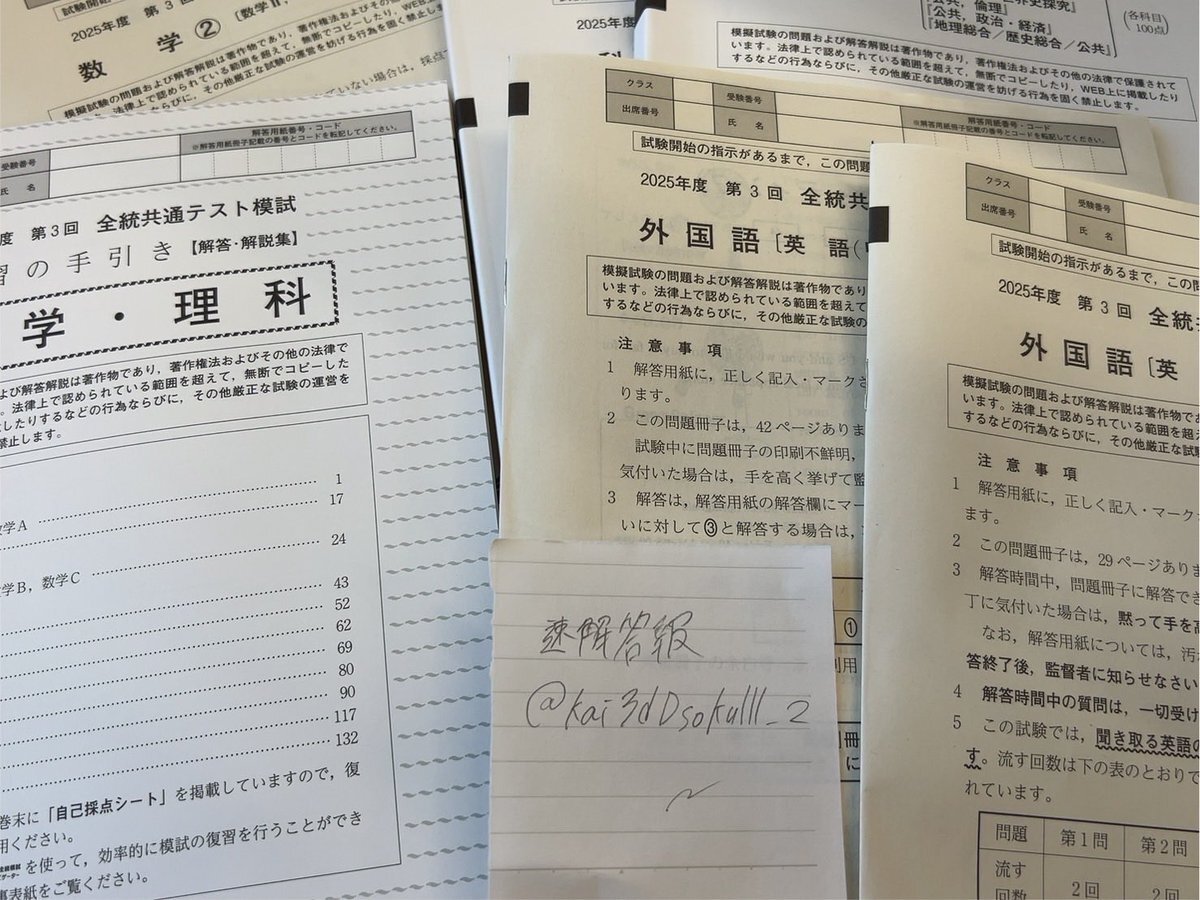 試験開始
2025年度 第3回
学②〔数学Ⅱ
数
模擬試験の問題および解答解説は著作物であり，著作権法および
法律上で認められている範囲を超えて，無断でコピーしたり，WEB上
するなどの行為ならびに，その他厳正な試験の運営を妨げる行為を固く禁止し
ていない場合は，採点
科
公共，倫理』
『公共，政治・経済』
『地理総合／歴史総合／公共』
(各科目)
100点
模擬試験の問題および解答解説は著作物であり，著作権法およびその他の法律で保護されて
います。法律上で認められている範囲を超えて，無断でコピーしたり，WEB上に掲載したり
するなどの行為ならびに，その他厳正な試験の運営を妨げる行為を固く禁止します。
受験番号
氏 名
解答用紙番号・コード
※解答用紙冊子記載の番号とコードを転記してください。
度 第3回 全統共通テスト模試
習の手引き【解答・解説集】
学・理科
よび解答解説は著作物であり，著作権法およびその他の法律で
。法律上で認められている範囲を超えて，無断でコピーした
したりするなどの行為ならびに，その他厳正な試験の運営を
禁止します。
1
学A 17
24
学B，数学C
43
52
62
69
80
90
117
132
巻末に「自己採点シート」を掲載していますので，復
用ください。
を使って，効率的に模試の復習を行うことができ
事表紙をご覧ください。
クラス
受験番号
出席番号
氏 名
解答用紙番号・コード
※解答用紙冊子記載の番号とコードを転記してください。
試験開始の指示があるまで，この問題
2025年度 第3回 全統共
外国語〔英 語(
模擬試験の問題および解答解説は著作物であり
います。法律上で認められている範囲を超えて
するなどの行為ならびに，その他厳正な試験の
注意事項
1 解答用紙に，正しく記入・マークさ
ります。
2 この問題冊子は，42ページありま
試験中に問題冊子の印刷不鮮明，
気付いた場合は，手を高く挙げて監
3 解答は，解答用紙の解答欄にマー
いに対して③と解答する場合は，
①
利用
冊
に
クラス
受験番号
出席番号
氏 名
試験開始の指示があるまで，この問
2025年度 第3回 全統
外国語〔英
模擬試験の問題および解答解説は著作物で
います。法律上で認められている範囲を超え
するなどの行為ならびに，その他厳正な試験
注意事項
1 解答用紙に，正しく記入・マーク
ます。
2 この問題冊子は，29ページありま
3 解答時間中，問題冊子に解答でき
丁に気付いた場合は，黙って手を高
なお，解答用紙については，汚
答終了後，監督者に知らせなさい
4 解答時間中の質問は，一切受け
5 この試験では，聞き取る英語の
す。流す回数は下の表のとおりで
れています。
問題 第1問 第2問
流す
回数 2回 2回
速解答報
@kai3dDsokulll_2